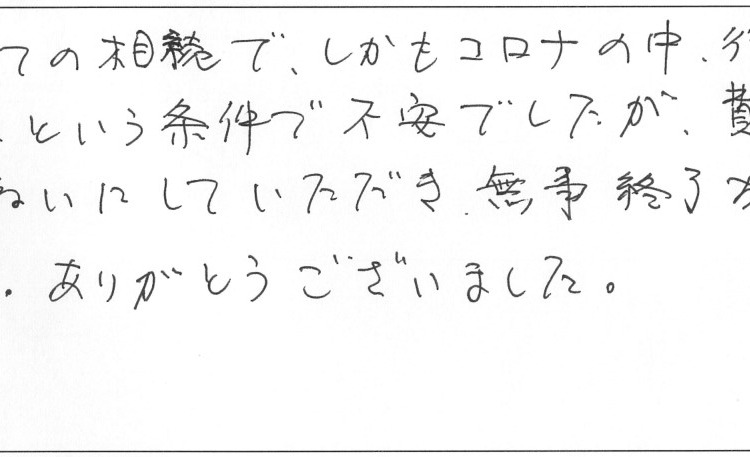 ての相続で、しかもコロナの中、行
という条件で不安でしたが、費
ねいにしていただき、無事終了
。ありがとうございました。